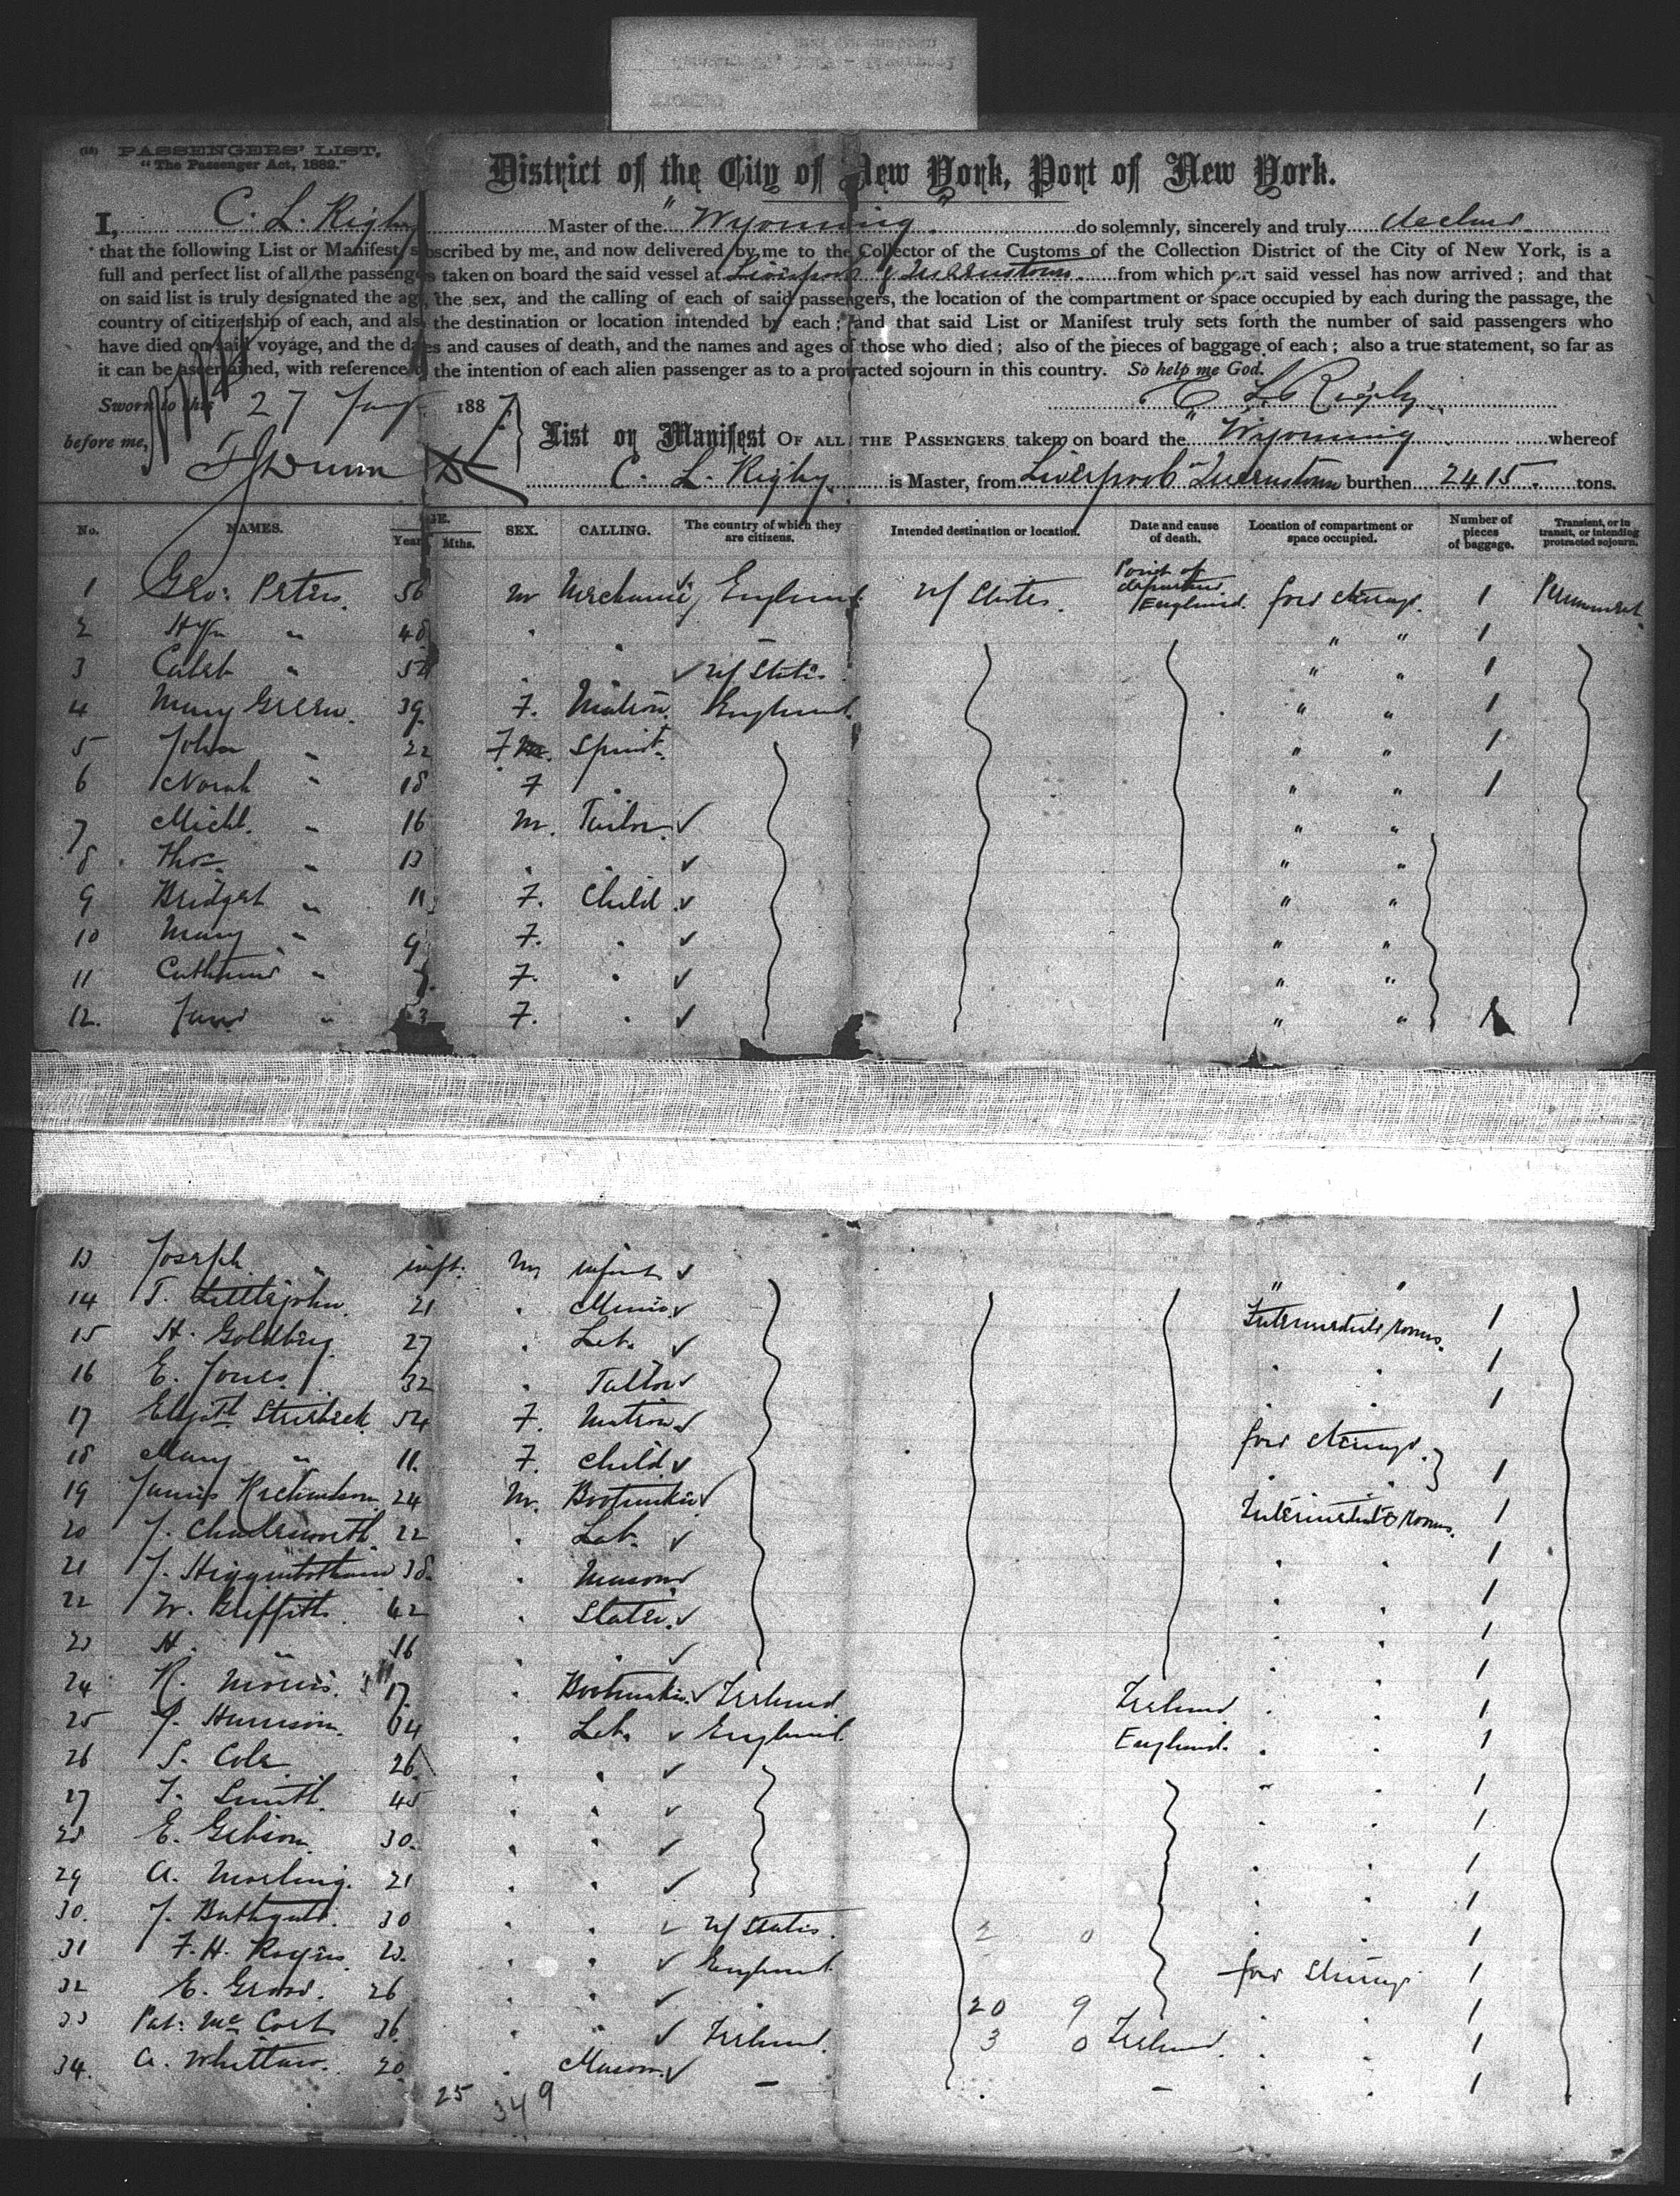 (18) PASSENGERS' LIST.
"The Passenger Act, 1882."
District of the City of New York, Port of New York.
I, C. L. Rigby Master of the "Wyoming" do solemnly, sincerely and truly declare
that the following List or Manifest, subscribed by me, and now delivered by me to the Collector of the Customs of the Collection District of the City of New York, is a
full and perfect list of all the passengers taken on board the said vessel at Liverpool & Queenstown from which port said vessel has now arrived; and that
on said list is truly designated the age, the sex, and the calling of each of said passengers, the location of the compartment or space occupied by each during the passage, the
country of citizenship of each, and also the destination or location intended by each; and that said List or Manifest truly sets forth the number of said passengers who
have died on said voyage, and the dates and causes of death, and the names and ages of those who died; also of the pieces of baggage of each; also a true statement, so far as
it can be ascertained, with reference to the intention of each alien passenger as to a protracted sojourn in this country. So help me God.
Sworn to this 27 1887 C. L. Rigby
before me, List or Manifest OF ALL THE PASSENGERS taken on board the "Wyoming" whereof
C. L. Rigby is Master, from Liverpool Queenstown burthen 2415 tons.
No. NAMES. AGE. Years Mths. SEX. CALLING. The country of which they are citizens. Intended destination or location. Date and cause of death. Location of compartment or space occupied. Number of pieces of baggage. Transient, or in transit, or intending protracted sojourn.
1 Geo: Peters. 56 m Mechanic England U States. Point of departure England. for steerage. 1 Permanent
2 " 48 . . " " 1
3 Caleb " 52 . . U States " " 1
4 Mary Green. 39. F. Matron. England. " " 1
5 John " 22 F m. Spinst. " " 1
6 Norah " 18 F . " " 1
7 Michl. " 16 m. Tailor " "
8 Thos " 13 . . " "
9 Bridget " 11 F. Child " "
10 Mary " 9 F. . " "
11 Catherine " 7. F. . " "
12. Jane " 3 F. . " " 1
13 Joseph " inft. m infant " "
14 T. Littlejohn. 21 . Miner Intermediate rooms. 1
15 H. Goldberg. 27 . Lab. . . 1
16 E. Jones 32 . Tailor . . 1
17 Elizth 54 F. Matron for steerage.
18 Mary " 11. F. Child . . 1
19 James Richardson 24 m. Bootmaker Intermediate rooms. 1
20 J. Chadsworth 22 . Lab. . . 1
21 J. Higginbotham 38. . Mason . . 1
22 W. Griffiths 42 . Slater. . . 1
23 H. " 16 . . . . 1
24 R. Morris. 17. . Bootmaker. Ireland Ireland . . 1
25 J. Harrison. 64 . Lab. England. England. . . 1
26 S. Cole 26 . . . . 1
27 T. Smith. 45 . . . . 1
28 E. Gibson 30. . . . . 1
29 A. Morling. 21 . . . . 1
30. J. Bathgate. 30 . . U States. 2 0 . . 1
31 F. H. Rogers 23. . . England. for Steerage 1
32 E. 26 . . 20 9 . . 1
33 Pat: Mc Cort 36. . . Ireland. 3 0 Ireland. . . 1
34. A. Whittaw. 20. . Mason. – . – . . 1
25 34 9